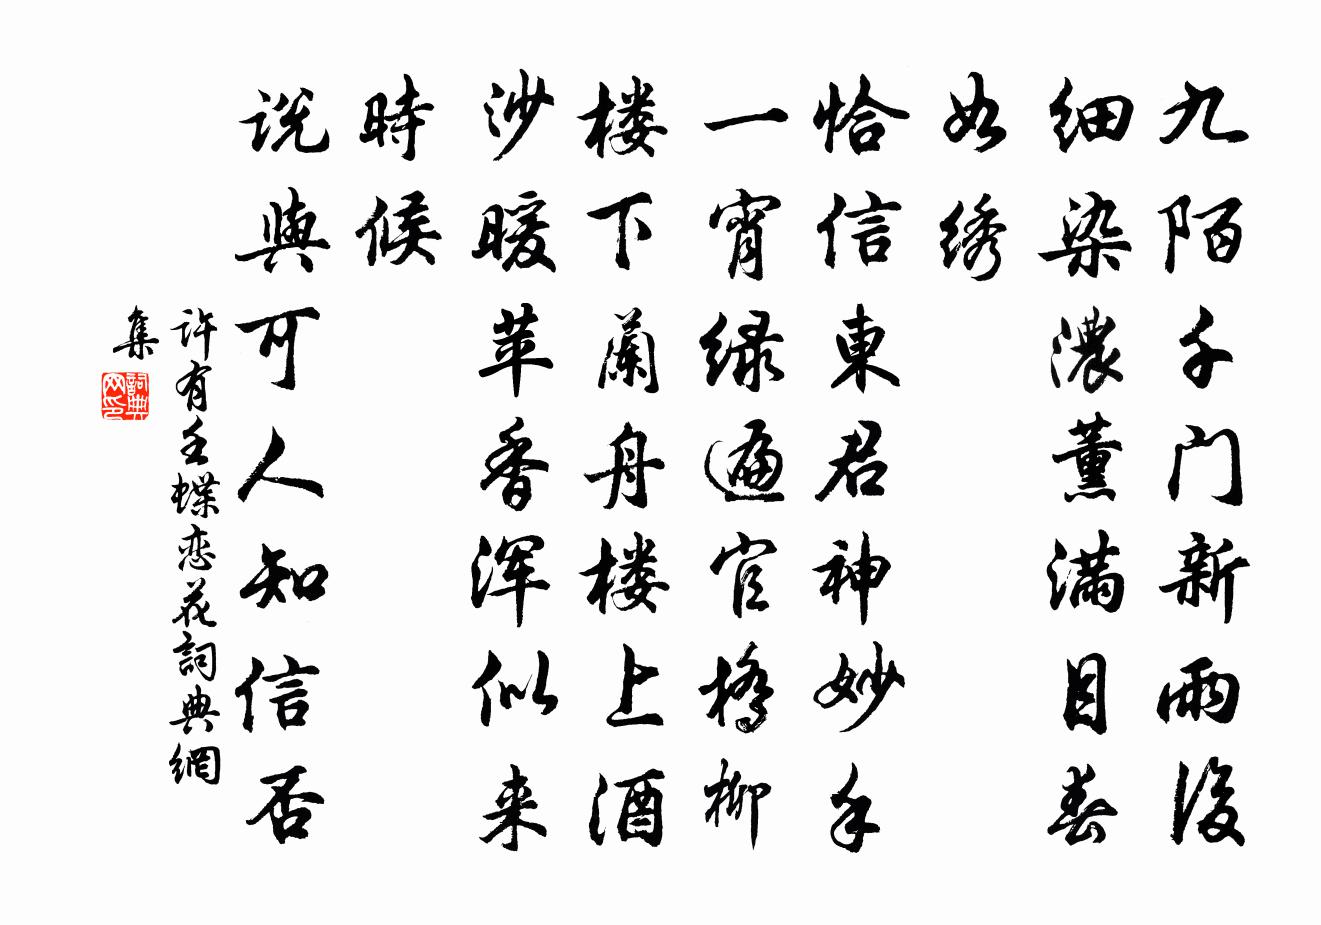 九陌千门新雨後
细染濃薰满目春
如绣
恰信東君神妙手
一宵绿遍官橋柳
楼下蘭舟楼上酒
沙暖苹香浑似来
時候
说與可人知信否
許有壬蝶恋花詞典網
集
詞典网印